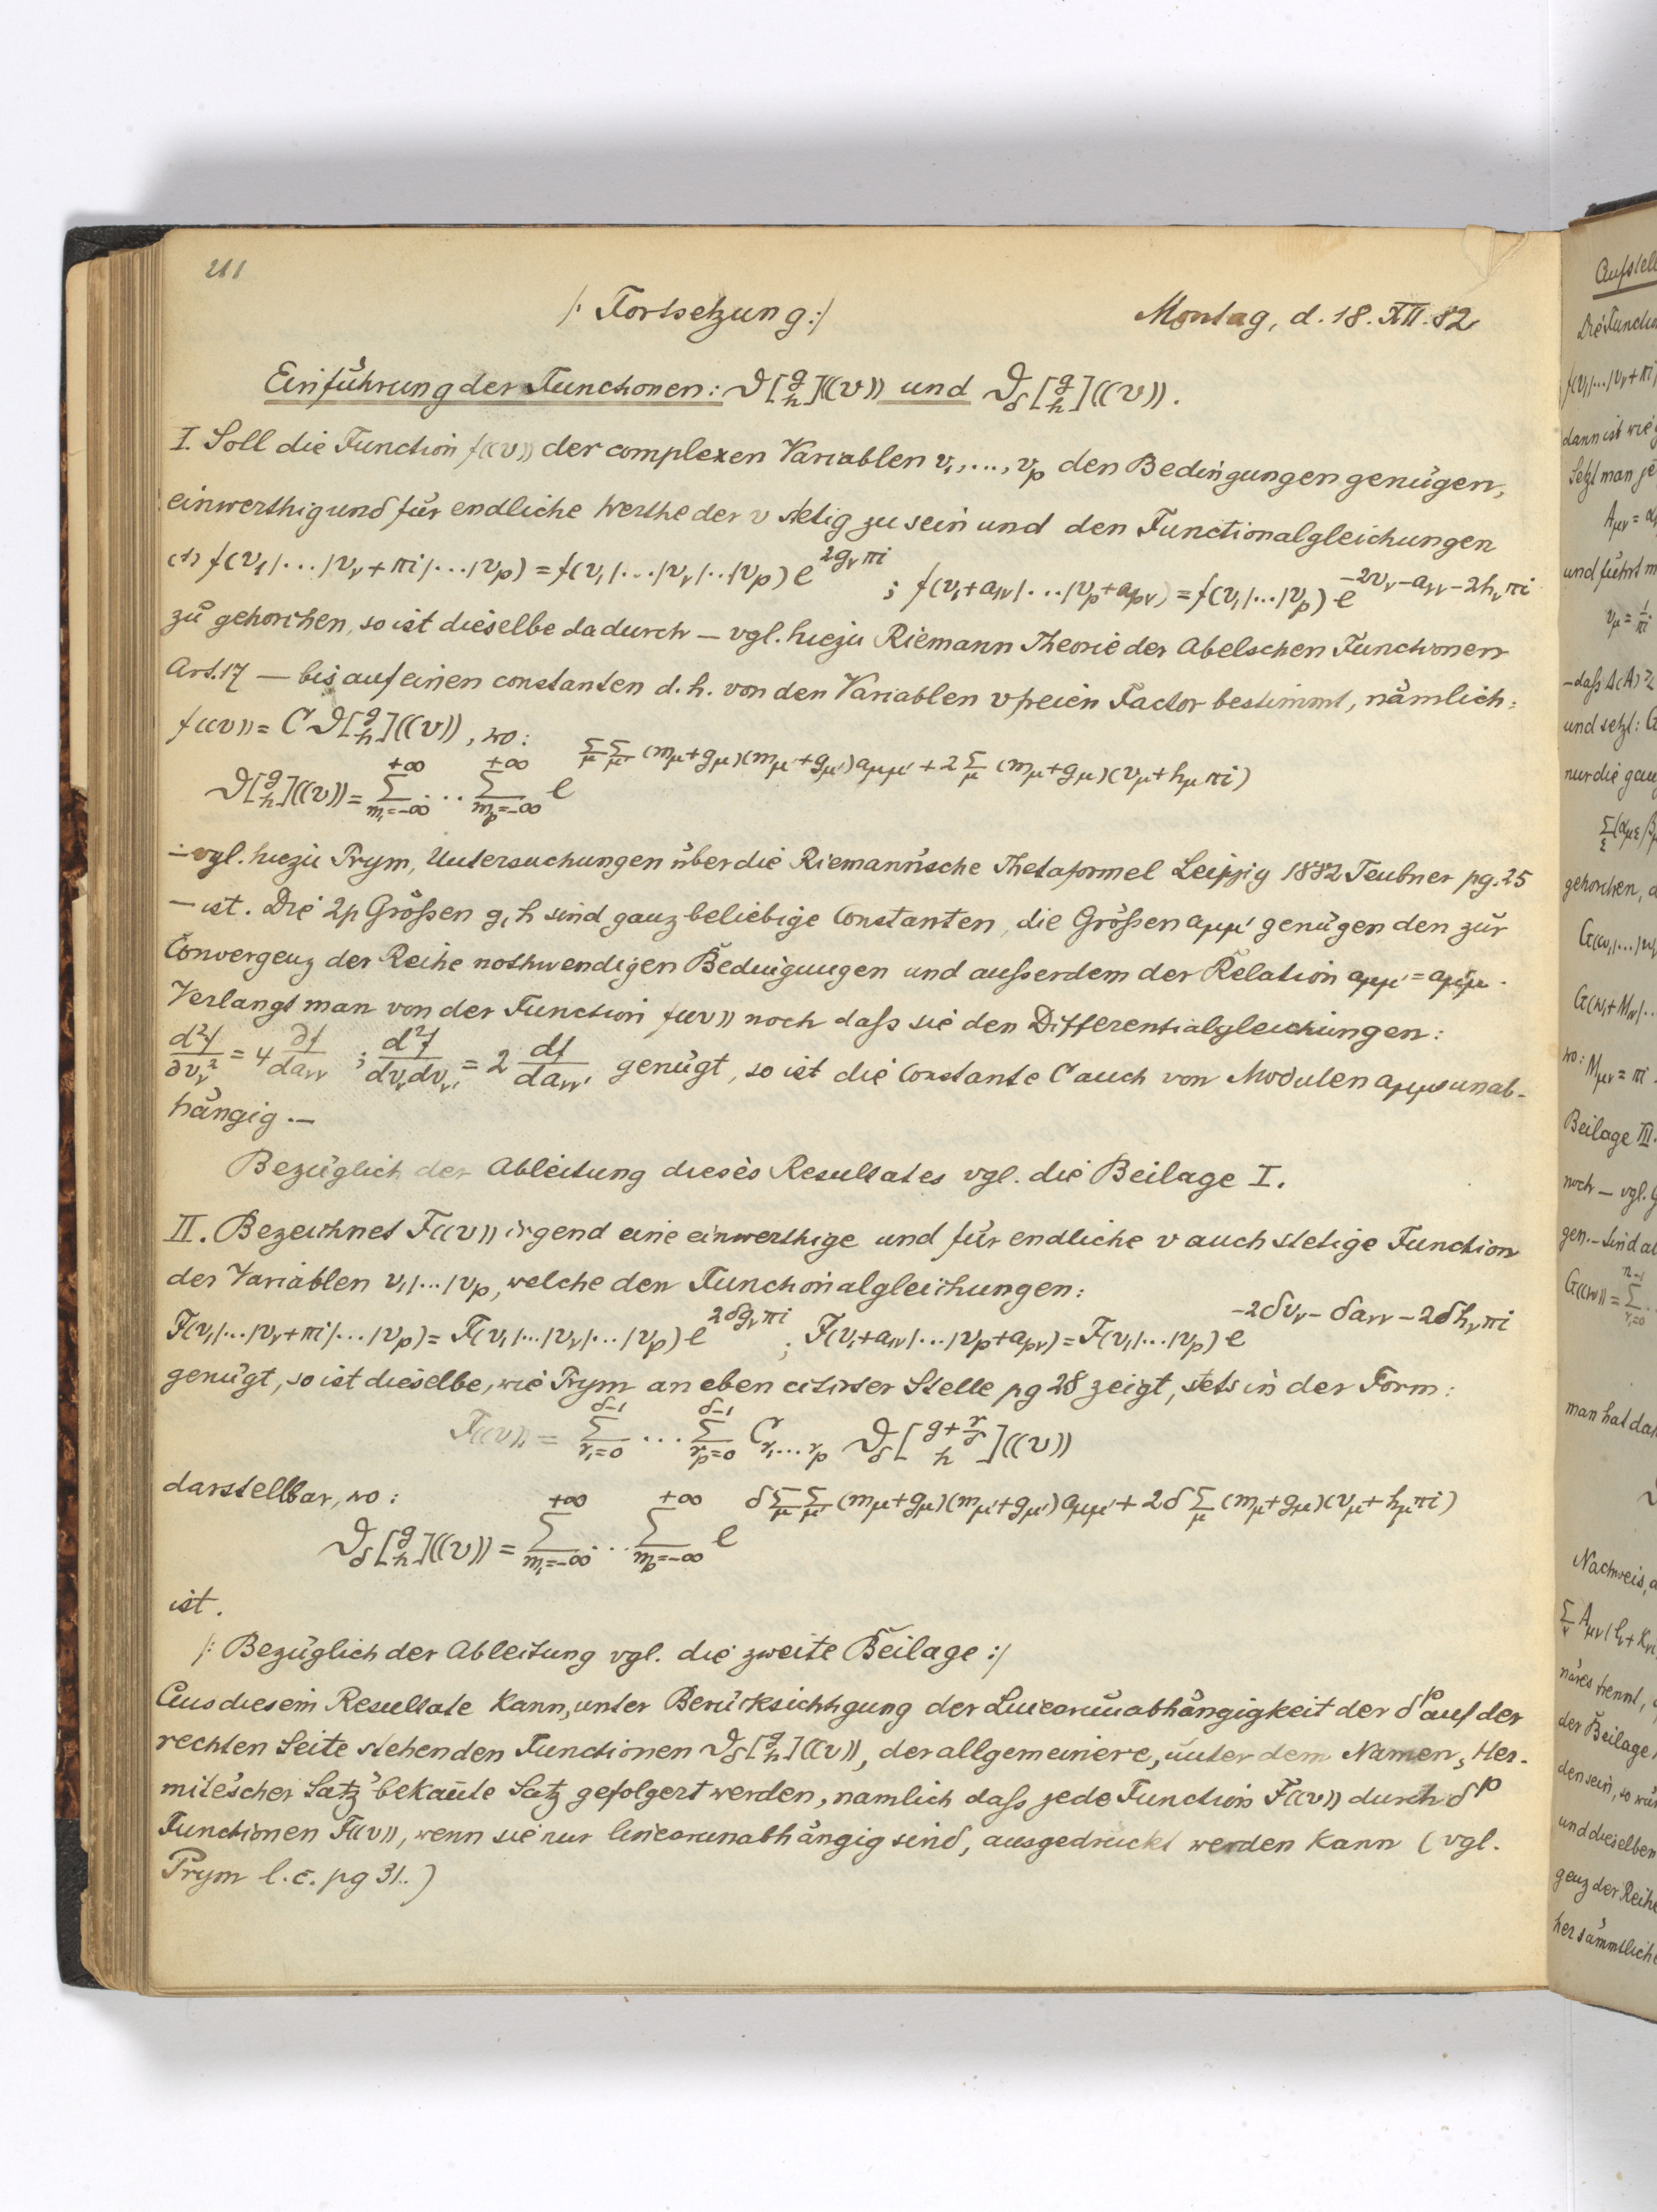 211
/: Fortsetzung :/ Montag, d. 18. XII. 82
Einführung der Functionen: ϑ[g h]((v)) und ϑ_δ[g h]((v)).
I. Soll die Function f((v)) der complexen Variablen v₁, ..., v_p den Bedingungen genügen,
einwerthig und für endliche Werthe der v stetig zu sein und den Functionalgleichungen
(1) f(v₁|...|v_ν+πi|...|v_p) = f(v₁|...|v_ν|..|v_p) e^{2g_ν πi} ; f(v₁+a_{1ν}|...|v_p+a_{pν}) = f(v₁|...|v_p) e^{-2v_ν-a_{νν}-2h_ν πi}
zu gehorchen, so ist dieselbe dadurch — vgl. hiezu Riemann Theorie der Abelschen Functionen
Art. 17 — bis auf einen constanten d. h. von den Variablen v freien Factor bestimmt, nämlich:
f((v)) = C ϑ[g h]((v)), wo:
ϑ[g h]((v)) = Σ_{m₁=-∞}^{+∞} ... Σ_{m_p=-∞}^{+∞} e^{Σ_μ Σ_μ' (m_μ+g_μ)(m_μ'+g_μ')a_{μμ'} + 2Σ_μ (m_μ+g_μ)(v_μ+h_μ πi)}
— vgl. hiezu Prym, Untersuchungen über die Riemann'sche Thetaformel Leipzig 1882 Teubner pg. 25
— ist. Die 2p Größen g, h sind ganz beliebige Constanten, die Größen a_{μμ'} genügen den zur
Convergenz der Reihe nothwendigen Bedingungen und außerdem der Relation a_{μμ'} = a_{μ'μ}.
Verlangt man von der Function f((v)) noch daß sie den Differentialgleichungen:
d²f/∂v_ν² = 4 ∂f/da_{νν} ; d²f/dv_ν dv_ν' = 2 df/da_{νν'} genügt, so ist die Constante C auch von Modulen a_{μμ'} unab-
hängig. —
Bezüglich der Ableitung dieses Resultates vgl. die Beilage I.
II. Bezeichnet F((v)) irgend eine einwerthige und für endliche v auch stetige Function
der Variablen v₁|...|v_p, welche den Functionalgleichungen:
F(v₁|...|v_ν+πi|...|v_p) = F(v₁|...|v_ν|...|v_p) e^{2δg_ν πi} ; F(v₁+a_{1ν}|...|v_p+a_{pν}) = F(v₁|...|v_p) e^{-2δv_ν - δa_{νν} - 2δh_ν πi}
genügt, so ist dieselbe, wie Prym an eben citirter Stelle pg 28 zeigt, stets in der Form:
F((v)) = Σ_{r₁=0}^{δ-1} ... Σ_{r_p=0}^{δ-1} C_{r₁...r_p} ϑ_δ[g+r/δ h]((v))
darstellbar, wo:
ϑ_δ[g h]((v)) = Σ_{m₁=-∞}^{+∞} ... Σ_{m_p=-∞}^{+∞} e^{δΣ_μ Σ_μ' (m_μ+g_μ)(m_μ'+g_μ')a_{μμ'} + 2δΣ_μ (m_μ+g_μ)(v_μ+h_μ πi)}
ist.
/: Bezüglich der Ableitung vgl. die zweite Beilage :/
Aus diesem Resultate kann, unter Berücksichtigung der Linearunabhängigkeit der δ^p auf der
rechten Seite stehenden Functionen ϑ_δ[g h]((v)), der allgemeinere, unter dem Namen „Her-
mite'scher Satz" bekannte Satz gefolgert werden, namlich daß jede Function F((v)) durch δ^p
Functionen F((v)), wenn sie nur linearunabhängig sind, ausgedrückt werden kann (vgl.
Prym l. c. pg 31..)